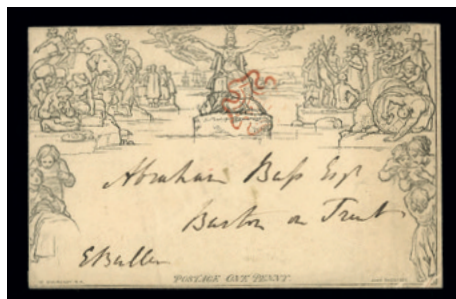 Abraham Bass Esqr
Burton on Trent
E Buller
POSTAGE ONE PENNY.